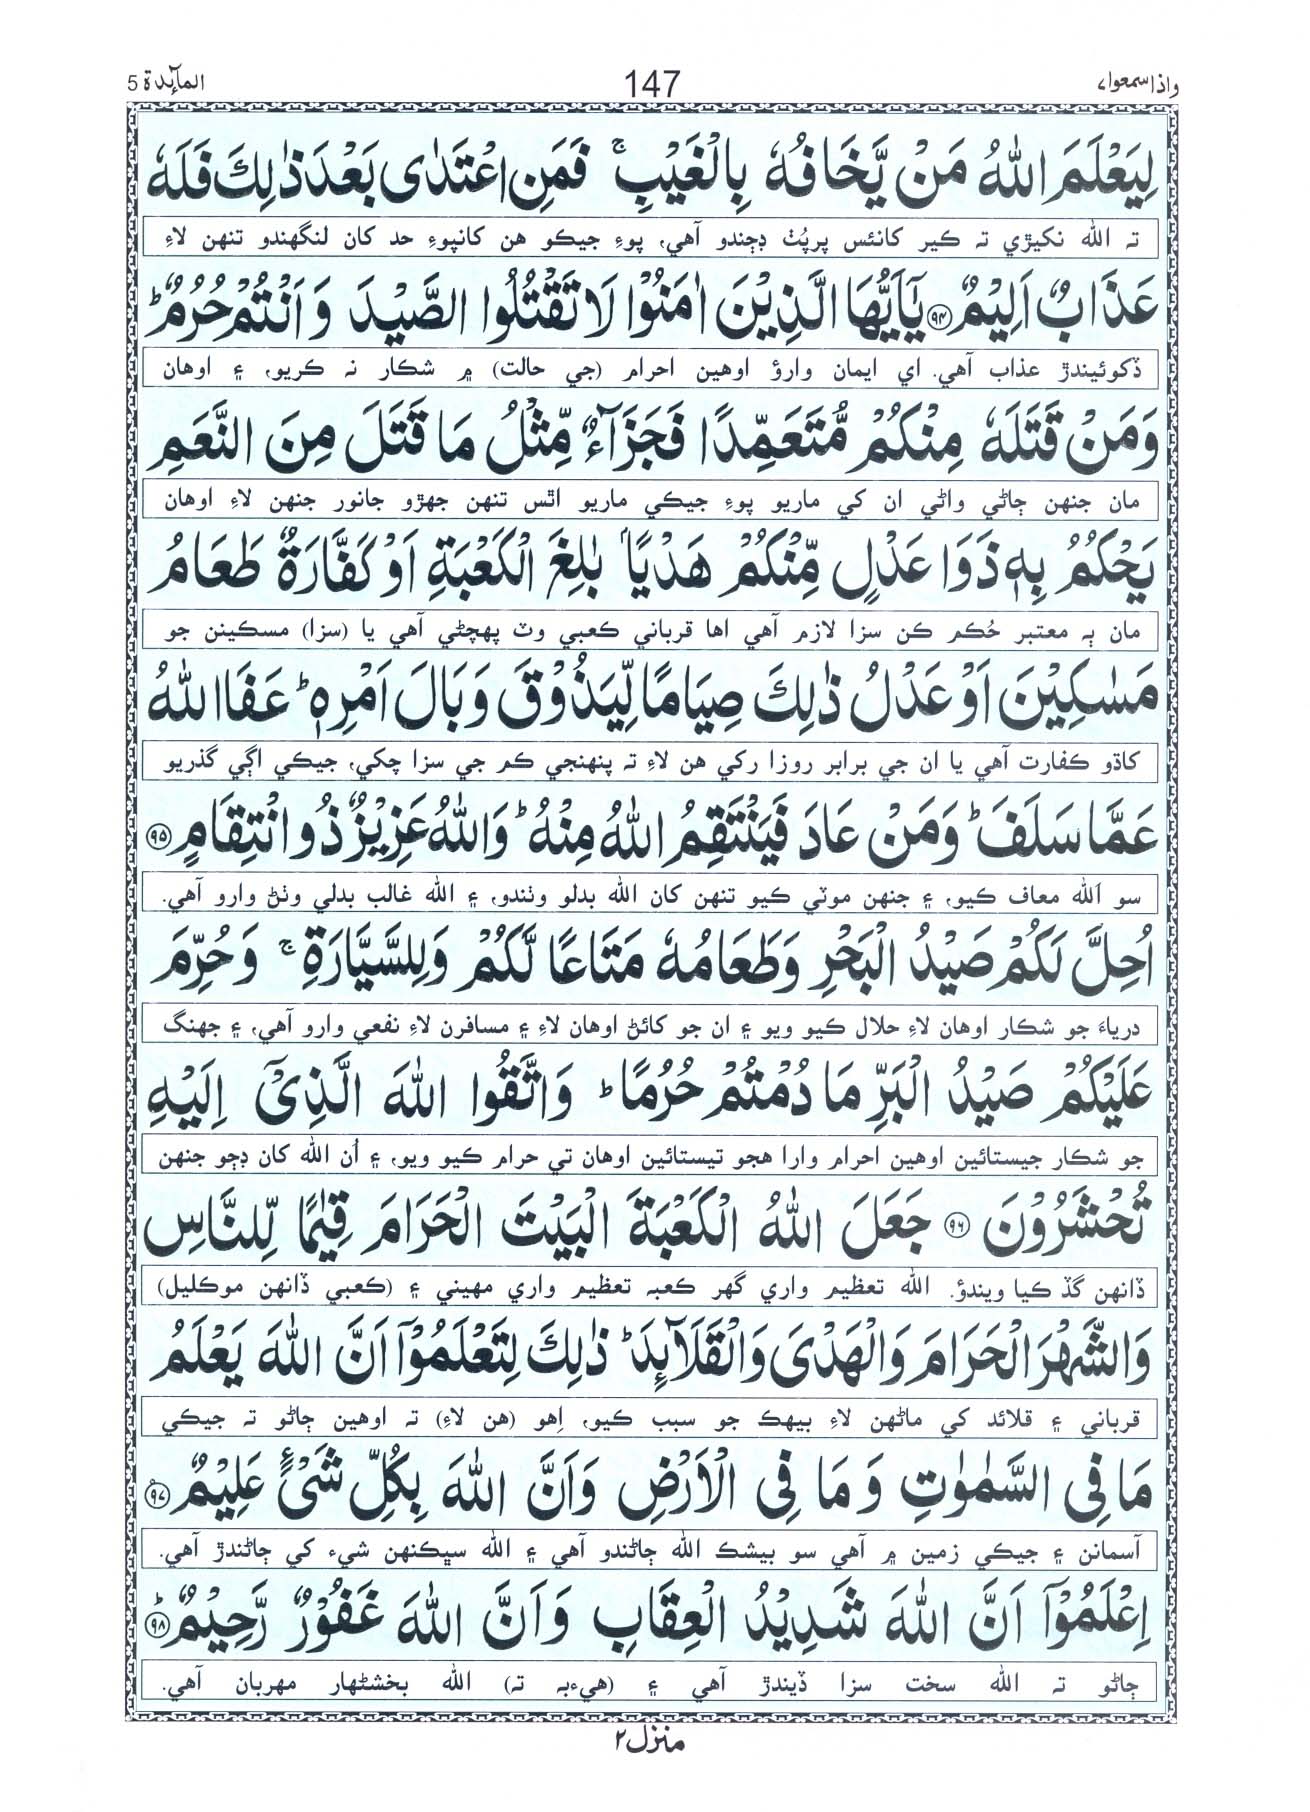 واذاسمعوا٧ 147 المآئدة 5
لِيَعْلَمَ اللّٰهُ مَنْ يَّخَافُهٗ بِالْغَيْبِ ۚ فَمَنِ اعْتَدٰى بَعْدَ ذٰلِكَ فَلَهٗ
ته الله نکيڙي ته ڪير کانئس پرپُٺ ڊڄندو آهي، پوءِ جيڪو هن کانپوءِ حد کان لنگهندو تنهن لاءِ
عَذَابٌ اَلِيْمٌ ۝۹۴ يٰٓاَيُّهَا الَّذِيْنَ اٰمَنُوْا لَا تَقْتُلُوا الصَّيْدَ وَ اَنْتُمْ حُرُمٌ ؕ
ڏکوئيندڙ عذاب آهي. اي ايمان وارؤ اوهين احرام (جي حالت) ۾ شڪار نه ڪريو، ۽ اوهان
وَمَنْ قَتَلَهٗ مِنْكُمْ مُّتَعَمِّدًا فَجَزَآءٌ مِّثْلُ مَا قَتَلَ مِنَ النَّعَمِ
مان جنهن ڄاڻي واڻي ان کي ماريو پوءِ جيڪي ماريو اٿس تنهن جهڙو جانور جنهن لاءِ اوهان
يَحْكُمُ بِهٖ ذَوَا عَدْلٍ مِّنْكُمْ هَدْيًاۢ بٰلِغَ الْكَعْبَةِ اَوْ كَفَّارَةٌ طَعَامُ
مان ٻه معتبر حُڪم ڪن سزا لازم آهي اها قرباني ڪعبي وٽ پهچڻي آهي يا (سزا) مسڪينن جو
مَسٰكِيْنَ اَوْ عَدْلُ ذٰلِكَ صِيَامًا لِّيَذُوْقَ وَبَالَ اَمْرِهٖ ؕ عَفَا اللّٰهُ
کاڌو ڪفارت آهي يا ان جي برابر روزا رکي هن لاءِ ته پنهنجي ڪم جي سزا چکي، جيڪي اڳي گذريو
عَمَّا سَلَفَ ؕ وَمَنْ عَادَ فَيَنْتَقِمُ اللّٰهُ مِنْهُ ؕ وَاللّٰهُ عَزِيْزٌ ذُو انْتِقَامٍ ۝۹۵
سو اَلله معاف ڪيو، ۽ جنهن موٽي ڪيو تنهن کان الله بدلو وٺندو، ۽ الله غالب بدلي وٺڻ وارو آهي.
اُحِلَّ لَكُمْ صَيْدُ الْبَحْرِ وَطَعَامُهٗ مَتَاعًا لَّكُمْ وَلِلسَّيَّارَةِ ۚ وَحُرِّمَ
درياءَ جو شڪار اوهان لاءِ حلال ڪيو ويو ۽ ان جو کائڻ اوهان لاءِ ۽ مسافرن لاءِ نفعي وارو آهي، ۽ جهنگ
عَلَيْكُمْ صَيْدُ الْبَرِّ مَا دُمْتُمْ حُرُمًا ؕ وَاتَّقُوا اللّٰهَ الَّذِيْٓ اِلَيْهِ
جو شڪار جيستائين اوهين احرام وارا هجو تيستائين اوهان تي حرام ڪيو ويو، ۽ اُن الله کان ڊڄو جنهن
تُحْشَرُوْنَ ۝۹۶ جَعَلَ اللّٰهُ الْكَعْبَةَ الْبَيْتَ الْحَرَامَ قِيٰمًا لِّلنَّاسِ
ڏانهن گڏ ڪيا ويندؤ. الله تعظيم واري گهر ڪعبه تعظيم واري مهيني ۽ (ڪعبي ڏانهن موڪليل)
وَالشَّهْرَ الْحَرَامَ وَالْهَدْيَ وَالْقَلَآئِدَ ؕ ذٰلِكَ لِتَعْلَمُوْٓا اَنَّ اللّٰهَ يَعْلَمُ
قرباني ۽ قلائد کي ماڻهن لاءِ بيهڪ جو سبب ڪيو، اِهو (هن لاءِ) ته اوهين ڄاڻو ته جيڪي
مَا فِي السَّمٰوٰتِ وَ مَا فِي الْاَرْضِ وَاَنَّ اللّٰهَ بِكُلِّ شَيْءٍ عَلِيْمٌ ۝۹۷
آسمانن ۽ جيڪي زمين ۾ آهي سو بيشڪ الله ڄاڻندو آهي ۽ الله سڀڪنهن شيء کي ڄاڻندڙ آهي.
اِعْلَمُوْٓا اَنَّ اللّٰهَ شَدِيْدُ الْعِقَابِ وَ اَنَّ اللّٰهَ غَفُوْرٌ رَّحِيْمٌ ؕ۝۹۸
ڄاڻو ته الله سخت سزا ڏيندڙ آهي ۽ (هيءبه ته) الله بخشڻهار مهربان آهي.
منزل۲